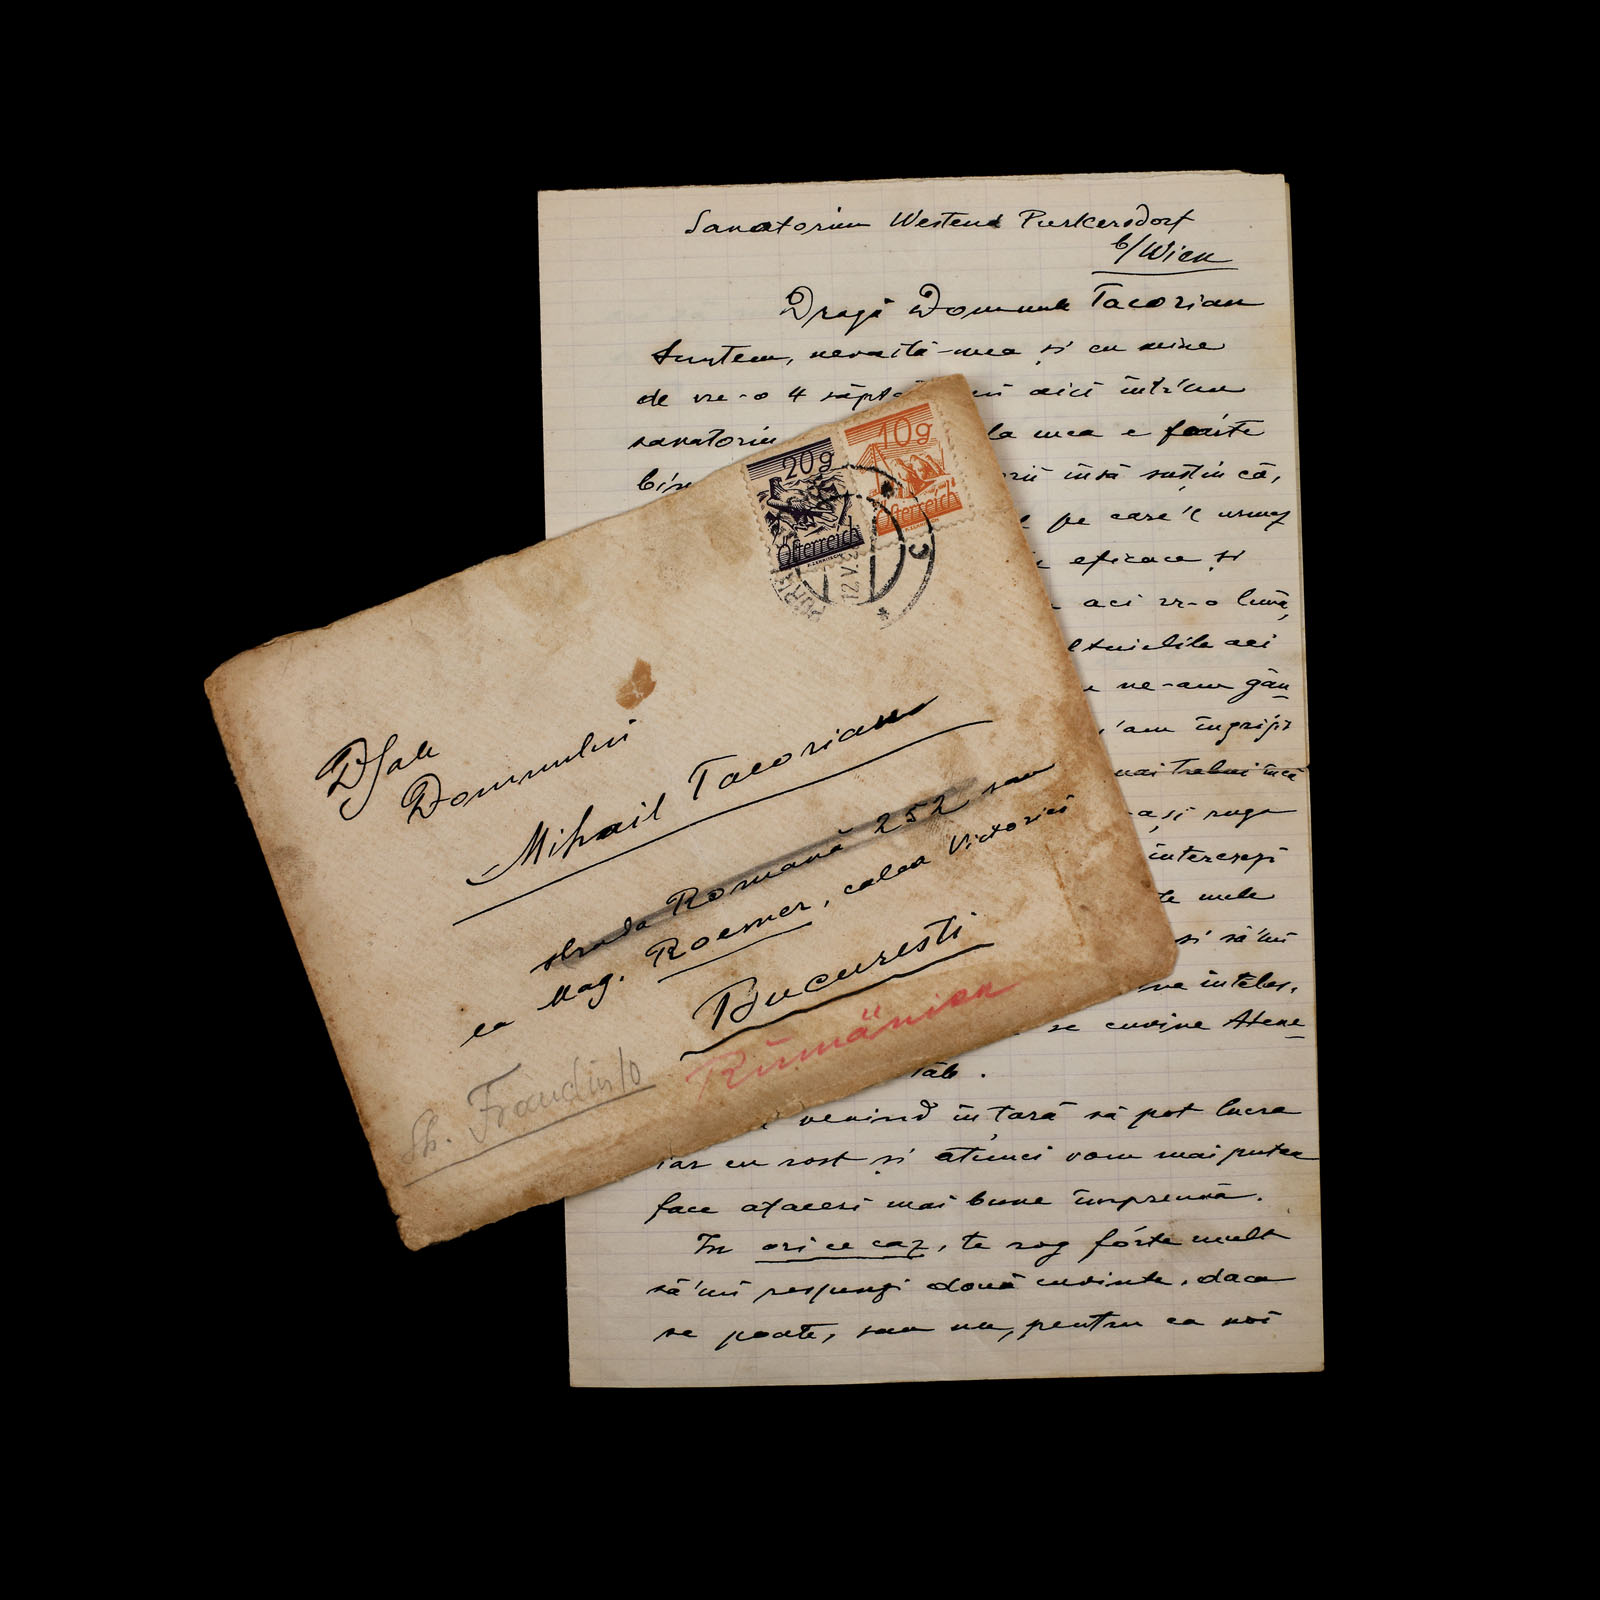 Sanatorium Westend Purkersdorf
b/Wien
Dragă Domnule Tacorian
Suntem, nevastă-mea și cu mine
de vre-o 4 aici într'un
sanatoriu la mea e foarte
bine însă susțin că,
pe care'l urmez
eficace și
aci vr-o lună,
aci
ne-am gân
'am îngrijit
mai trebui încă
ruga
interesezi
te mele
si să'mi
înteles,
se cuvine Atene
venind în țară să pot lucra
iar cu rost și atunci vom mai putea
face afaceri mai bune împreună.
In ori ce caz, te rog fórte mult
să'mi respunzi două cuvinte, daca
se poate, sau nu, pentru ca noi
20g
Österreich
10g
Österreich
C
DSale
Domnului
Mihail Tacorian
strada Romană 252 sau
la Mag. Roemer, calea Victoriei
Bucuresti
Rumänien